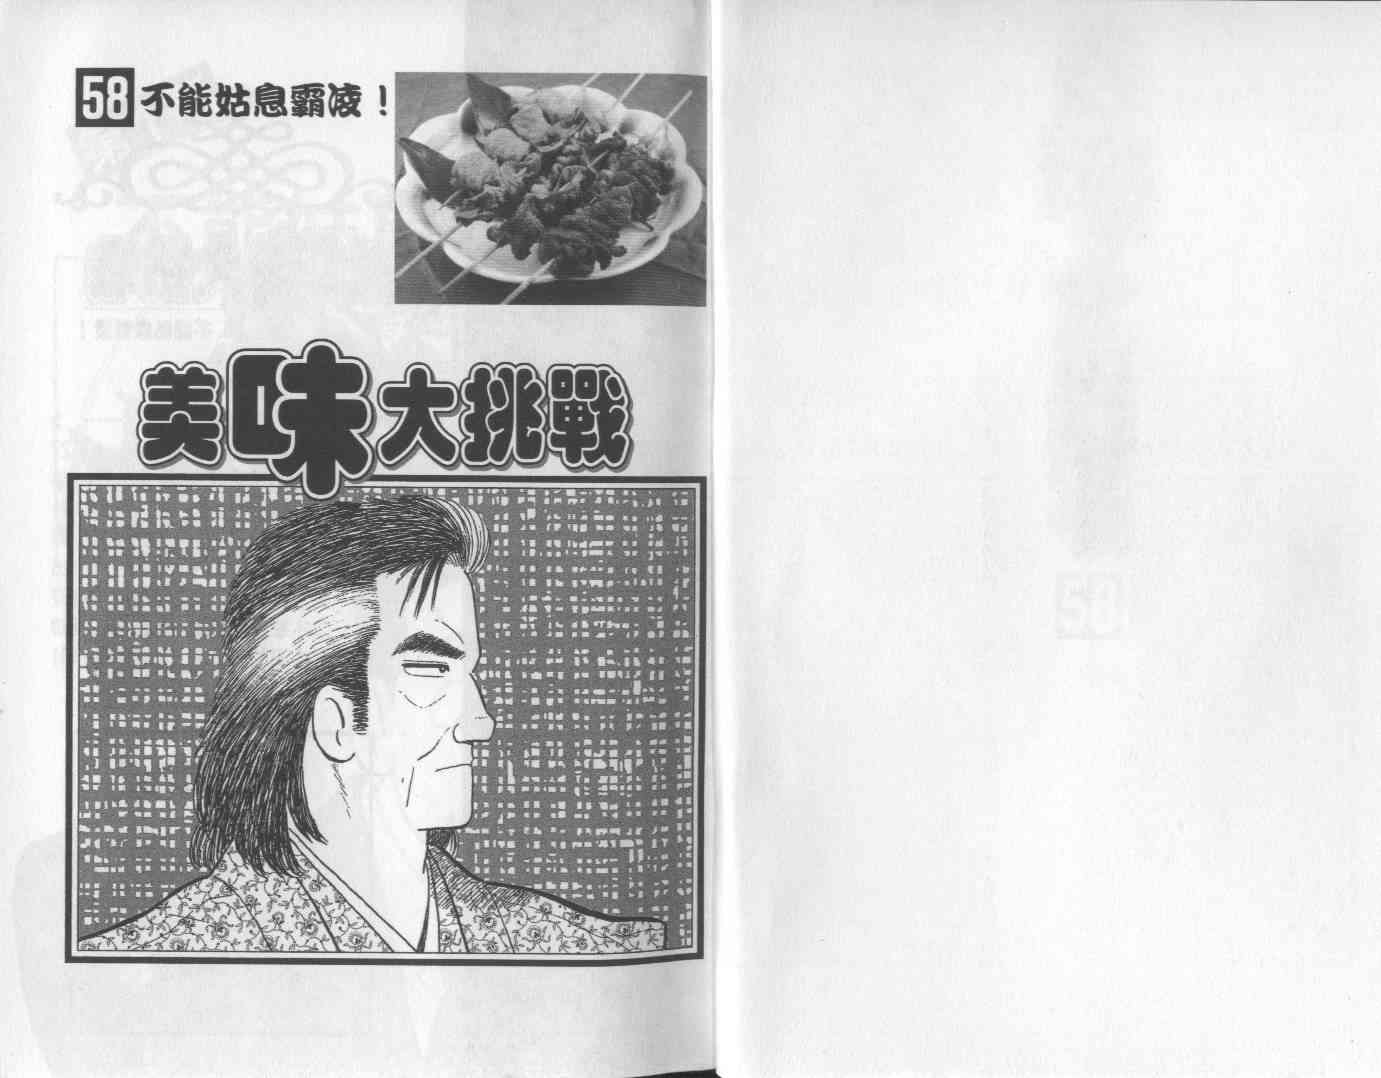 58 不能姑息霸凌！
美味大挑戰
58